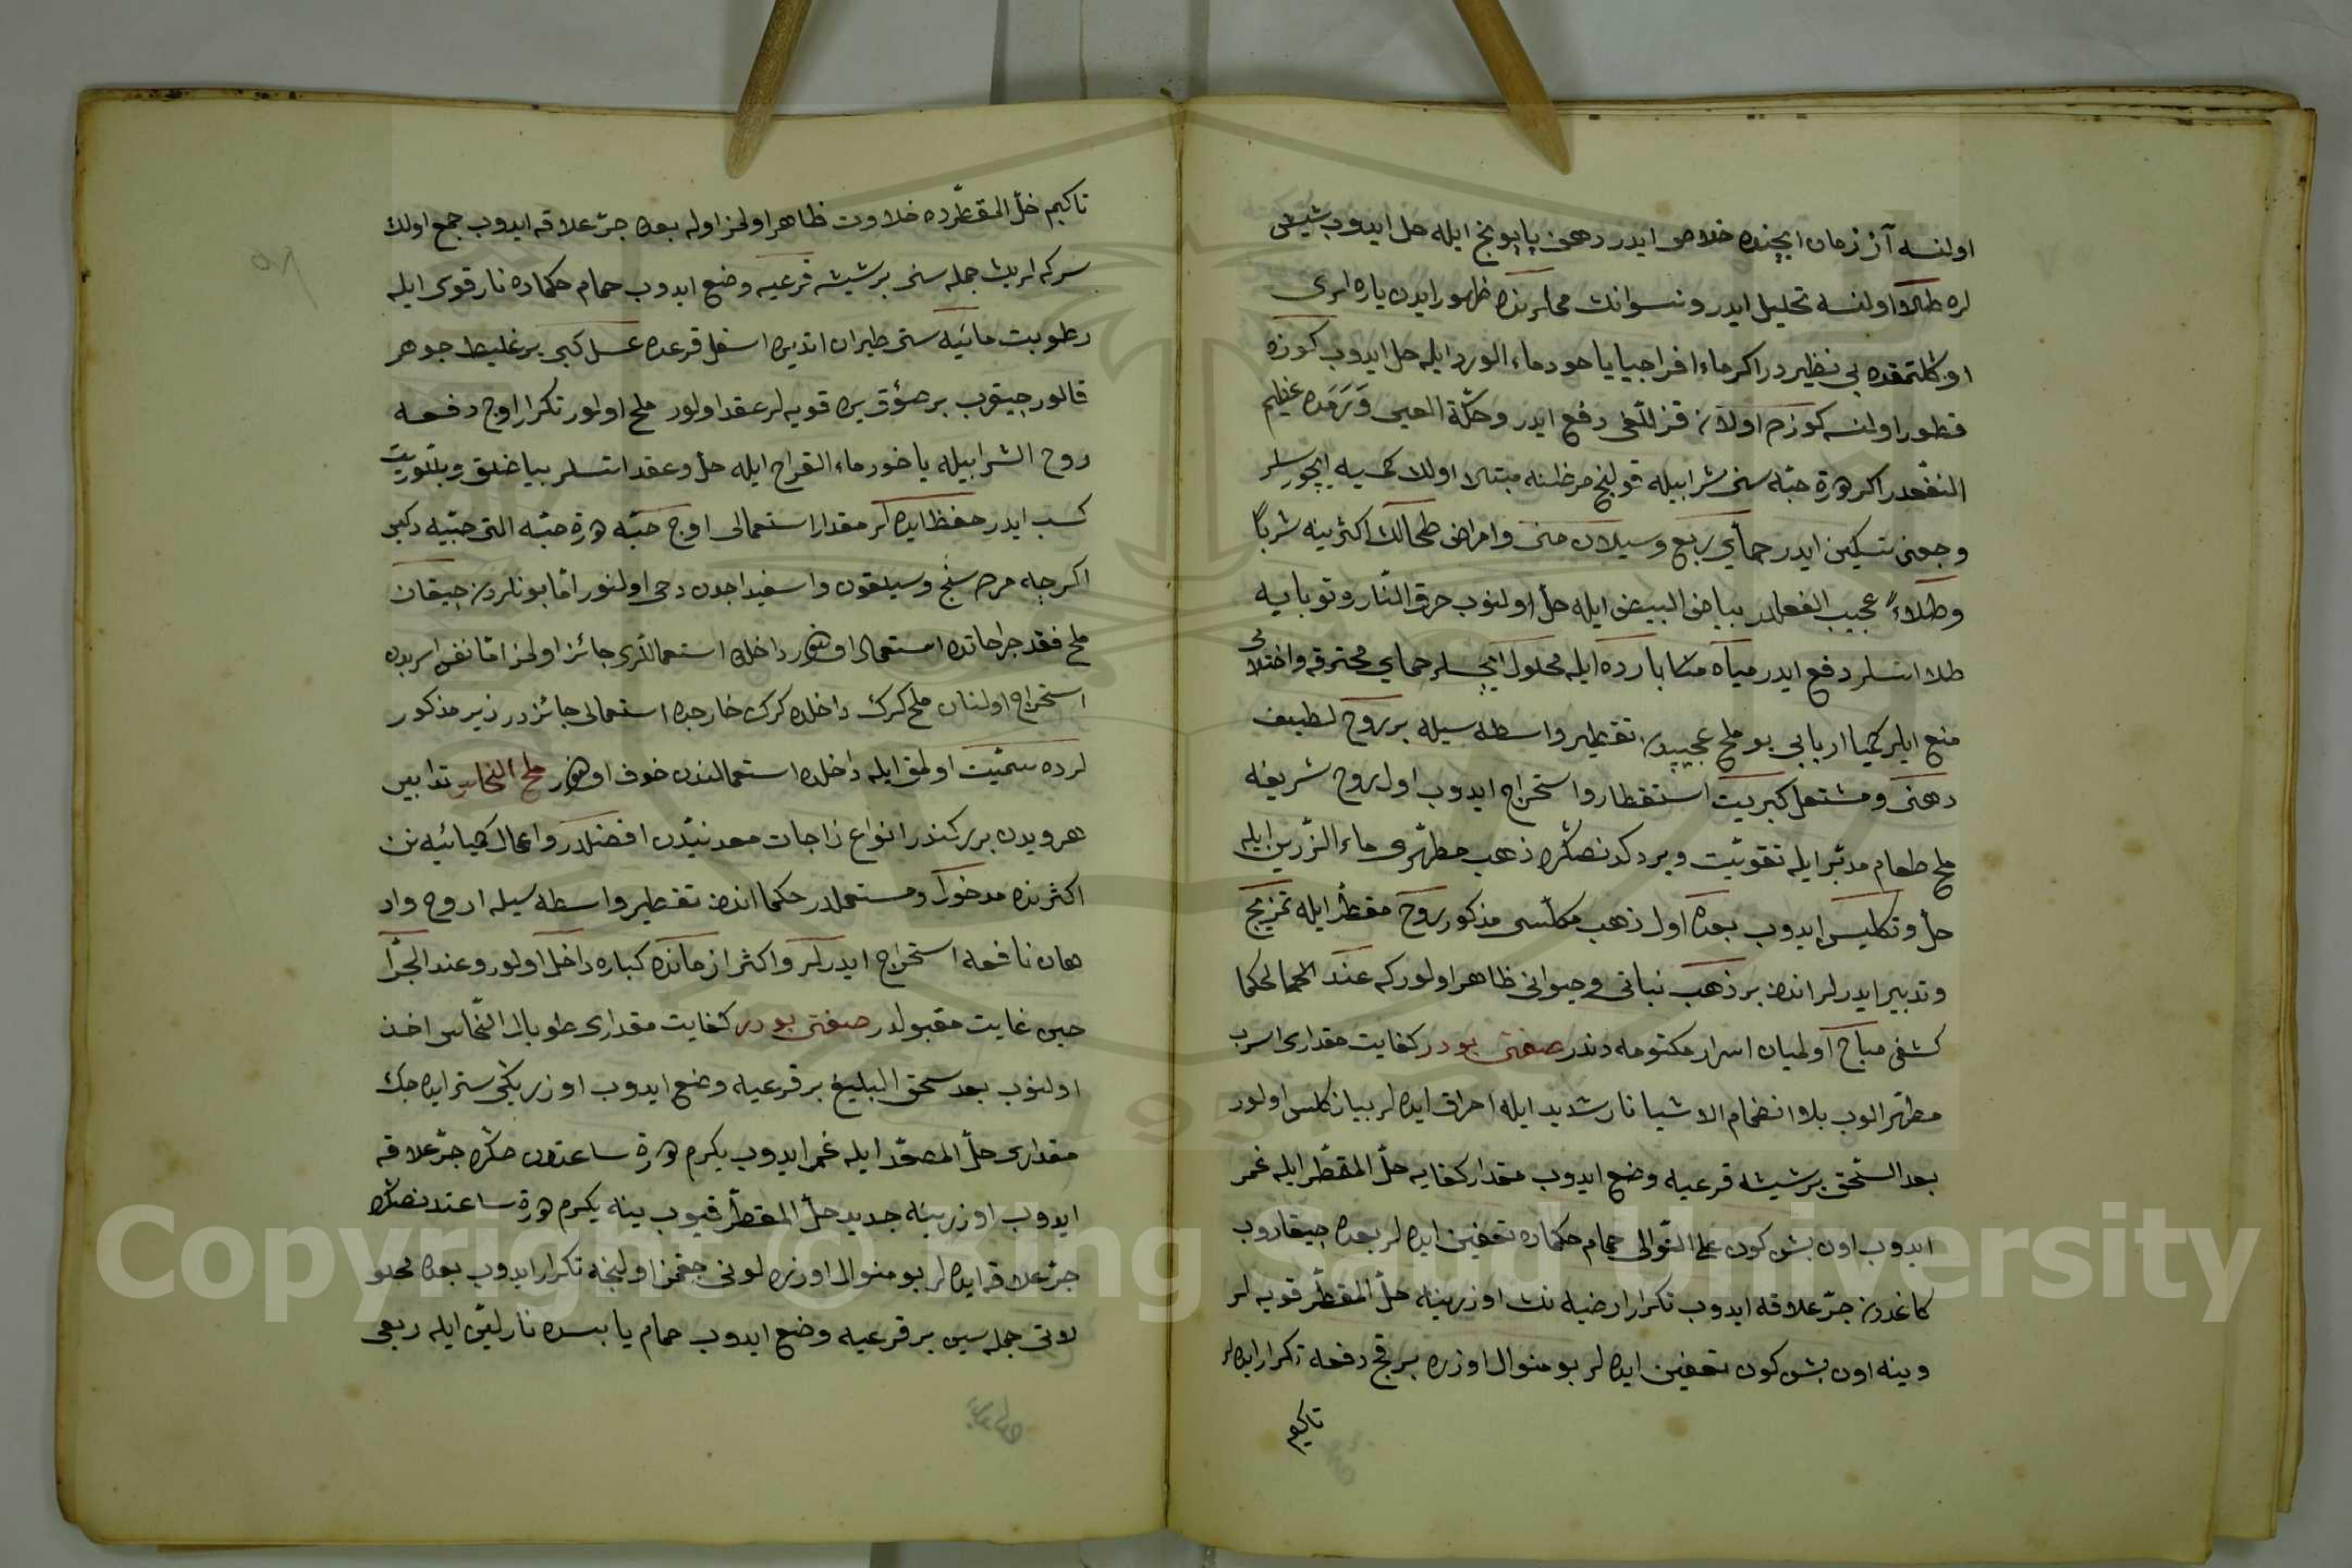 اولنسه آز زمان ایچنده خلاص ایدر دهن پاپونج ایله حل ایدوب شیش
لره طلاٶ اولنسه تحلیل ایدر و نسوانك محللرنده ظهور ایدن یاره لری
اوکلتمقده بی نظیر در اکر ماء افراجیا یا خود ماء الورد ایله حل ایدوب کوزه
قطور اولنسه کوزم اولان قزللغی دفع ایدر و حکّة العین و رمده عظیم
النفعدر اکر حبّه سنی شراب ایله قولنج مرضنه مبتلا اولان کمسیه ایچورسلر
وجعنی تسکین ایدر حمای ربع و سیلان منی و امراض طحالك اکثرینه شرباً
و طلاءً عجیب الفعلدر بیاض البیض ایله حل اولنوب حرق النار و توبایه
طلا اتسلر دفع ایدر میاه بارده ایله محلول ایچسلر حمای محترقه و اختلاجی
منع ایلر کیمیا اربابی بو ملح عجیبدن تقطیر واسطه سیله بر روح لطیف
دهنی و مشتعل کبریت استقطار و استخراج ایدوب اول روح شریفه
ملح طعام مدبّر ایله تقویت ویردکدنصکره ذهب مطهّری ماء الزرین ایله
حل و تکلیس ایدوب بعده اول ذهب مکلّسی مذکور روح مقطّر ایله تمزیج
و تدبیر ایدرلر اندن بر ذهب نباتی و حیوانی ظاهر اولور که عند الحکما
کشفی مباح اولمیان اسرار مکتومه دندر صفتی بودر کفایت مقداری اسرب
مطهّر الوب بلا انضمام الاشیا نار شدید ایله احراق ایده لر بیاز کلس اولور
بعد السّحق بر شیشه قرعیه وضع ایدوب مقدار کفایه خلّ المقطّر ایله غمر
ایدوب اون بش کون علی التّوالی حمام حکماده تعفین ایده لر بعده چیقاروب
کاغددن جرّ علاقه ایدوب تکرار ارضیه نك اوزرینه خلّ المقطّر قویه لر
و ینه اون بش کون تعفین ایده لر بو منوال اوزره بر قچ دفعه تکرار ایده لر
تاکیم
تاکیم خلّ المقطّرده حلاوت ظاهر اولمز اوله بعده جرّ علاقه ایدوب جمع اولان
سرکه لرك جمله سنی بر شیشه قرعیه وضع ایدوب حمام حکماده نار قوی ایله
رطوبت مائیه سنی طیران اتدیره اسفل قرعده عسل کبی بر غلیظ جوهر
قالور چیقروب بر صوٶق یره قویه لر عقد اولور ملح اولور تکرار اوچ دفعه
روح الشراب ایله یا خود ماء القراح ایله حل و عقد اتسلر بیاضلق و بلّوریت
کسب ایدر حفظ ایده لر مقدار استعمالی اوچ حبّه دن التی حبّیه دکین
اکرچه مرده سنج و سیلقون و اسفیداجدن دخی اولنور امّا بونلردن چیقان
ملح فقط جراحاتده استعمال اولنور داخلاً استعماللری جائز اولمز امّا نفس اسربدن
استخراج اولنان ملح کرك داخلده کرك خارجده استعمالی جائزدر زیر مذکور
لرده سمّیّت اولمق ایله داخلده استعمالندن خوف اولنور ملح النحاس تدابیر
هرویدن بری کندر انواع زاجات معدنیّدن افضلدر و اعمال کیمیائیه نن
اکثرنده مدخول و مستعملدر حکما اندن تقطیر واسطه سیله ارواح و اد
هان نافعه استخراج ایدرلر و اکثر ازمانده کباره داخل اولور و عند الجرّا
حین غایت مقبولدر صفتی بودر کفایت مقداری طوبال النّحاس اخذ
اولنوب بعد سحق البلیغ بر قرعیه وضع ایدوب اوزرینی ستر ایده جك
مقداری خلّ المصعّد ایله غمر ایدوب یکرم دورت ساعتدن صکره جرّ علاقه
ایدوب اوزرینه جدید خلّ المقطّر قیوب ینه یکرم دورت ساعتدنصکره
جرّ علاقه ایده لر بو منوال اوزره لونی چقمز اولنجه تکرار ایدوب بعده محلو
لاتی جمله سین بر قرعیه وضع ایدوب حمام یابسده نار لیّن ایله ربعی
Copyright © King Saud University
1957